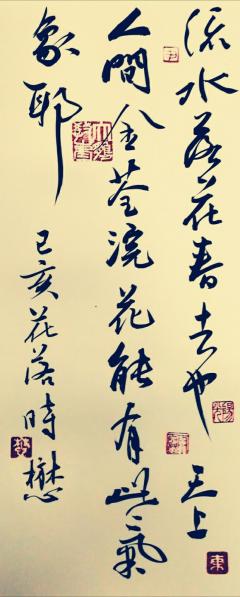 流水落花春去也天上
人間金荃浣花能有此氣
象耶
己亥花落時懋